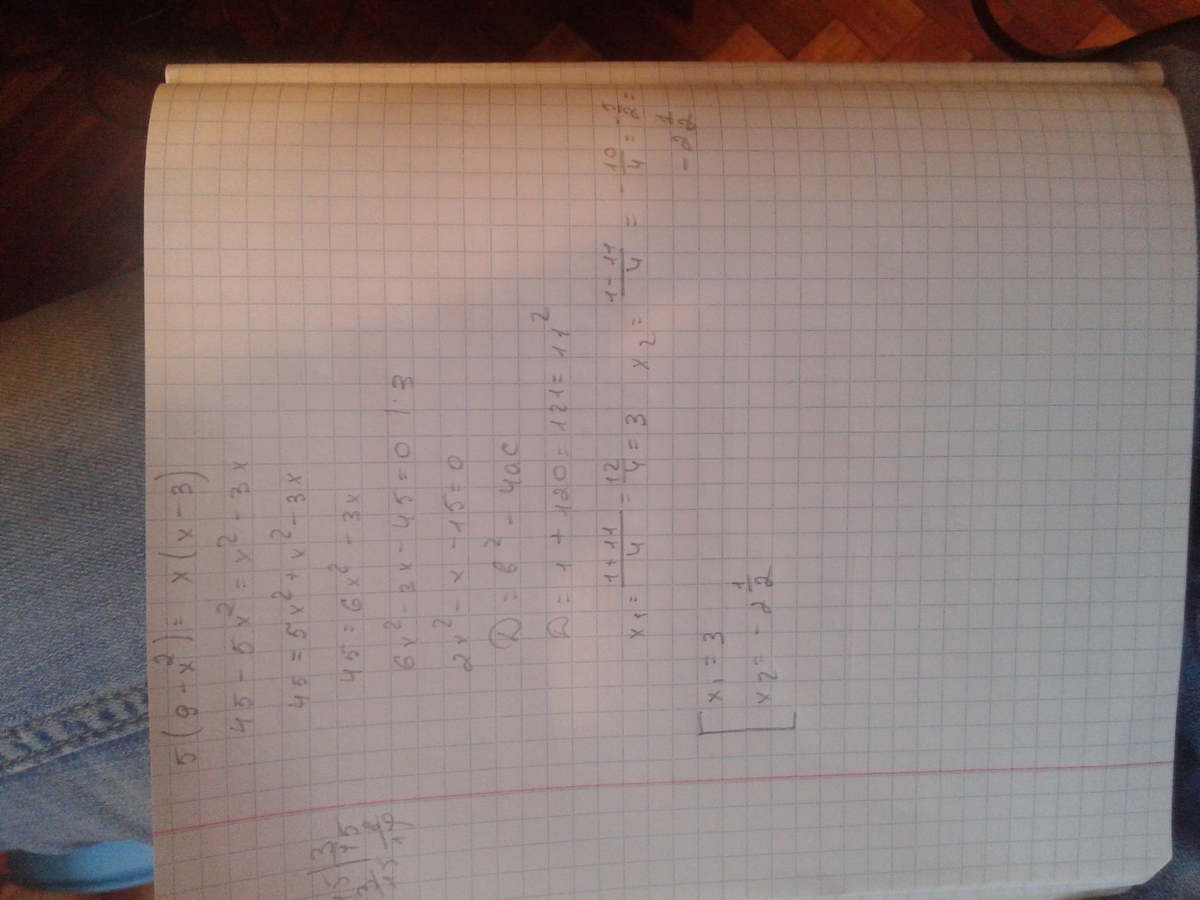 5(9 - x²) = x(x - 3)
45 - 5x² = x² - 3x
45 = 5x² + x² - 3x
45 = 6x² - 3x
6x² - 3x - 45 = 0 | : 3
2x² - x - 15 = 0
D = b² - 4ac
D = 1 + 120 = 121 = 11²
x₁ = (1 + 11)/4 = 12/4 = 3 x₂ = (1 - 11)/4 = - 10/4 = - 5/2 =
- 2 1/2
[ x₁ = 3
x₂ = - 2 1/2